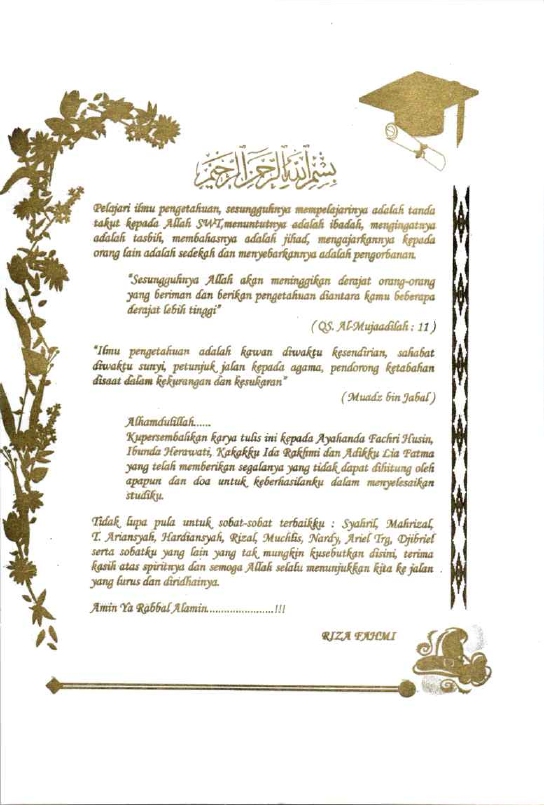 بسم الله الرحمن الرحيم
Pelajari ilmu pengetahuan, sesungguhnya mempelajarinya adalah tanda
takut kepada Allah SWT,menuntutnya adalah ibadah, mengingatnya
adalah tasbih, membahasnya adalah jihad, mengajarkannya kepada
orang lain adalah sedekah dan menyebarkannya adalah pengorbanan.
"Sesungguhnya Allah akan meninggikan derajat orang-orang
yang beriman dan berikan pengetahuan diantara kamu beberapa
derajat lebih tinggi"
( QS. Al-Mujaadilah : 11 )
"Ilmu pengetahuan adalah kawan diwaktu kesendirian, sahabat
diwaktu sunyi, petunjuk jalan kepada agama, pendorong ketabahan
disaat dalam kekurangan dan kesukaran"
( Muadz bin Jabal )
Alhamdulillah......
Kupersembahkan karya tulis ini kepada Ayahanda Fachri Husin,
Ibunda Herawati, Kakakku Ida Rakhmi dan Adikku Lia Fatma
yang telah memberikan segalanya yang tidak dapat dihitung oleh
apapun dan doa untuk keberhasilanku dalam menyelesaikan
studiku.
Tidak lupa pula untuk sobat-sobat terbaikku : Syahril, Mahrizal,
T. Ariansyah, Hardiansyah, Rizal, Muchlis, Nardy, Arief Trg, Djibrief
serta sobatku yang lain yang tak mungkin kusebutkan disini, terima
kasih atas spiritnya dan semoga Allah selalu menunjukkan kita ke jalan
yang lurus dan diridhainya.
Amin Ya Rabbal Alamin.......................!!!
RIZA FAHMI